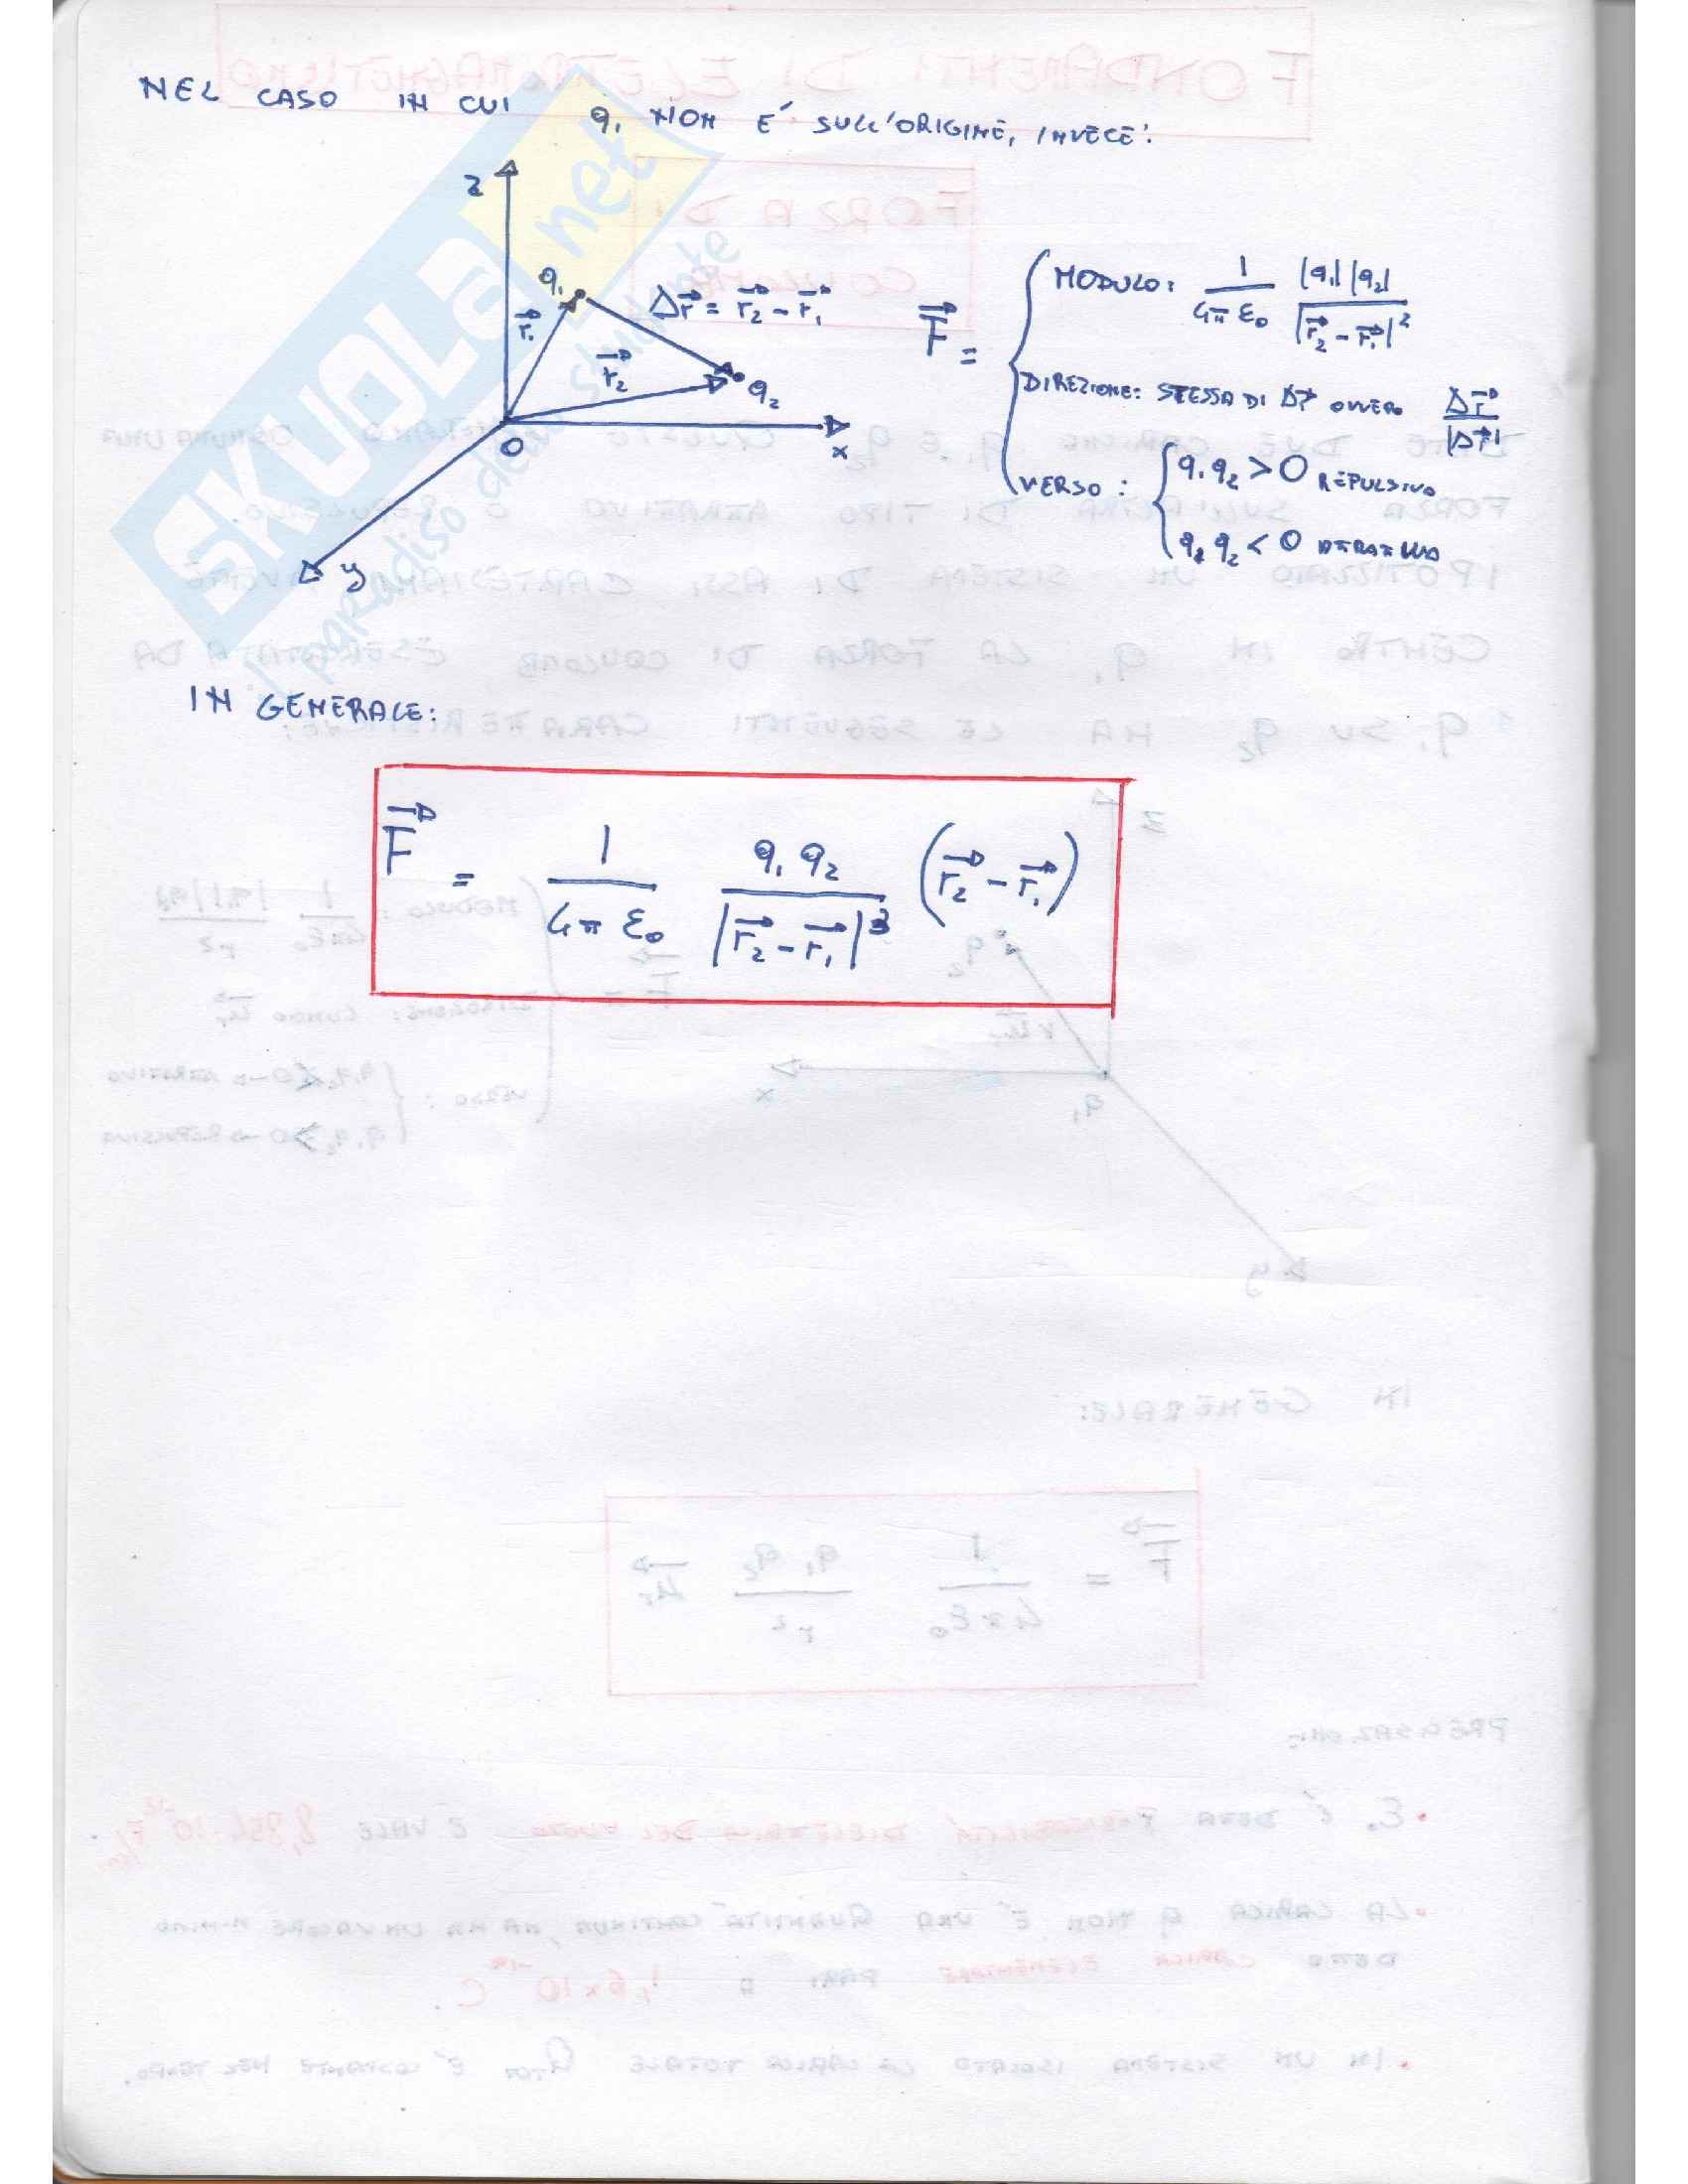 NEL CASO IN CUI q₁ NON É SULL'ORIGINE, INVECE:
z
q₁
Δr⃗ = r⃗₂ - r⃗₁
r⃗₁
r⃗₂
q₂
O
x
y
F⃗ =
MODULO: 1/(4π ε₀) |q₁| |q₂| / |r⃗₂ - r⃗₁|²
DIREZIONE: STESSA DI Δr⃗ OVVERO Δr⃗/|Δr⃗|
VERSO: { q₁ q₂ > 0 REPULSIVO
q₁ q₂ < 0 ATTRATTIVO
IN GENERALE:
F⃗ = 1/(4π ε₀) q₁ q₂ / |r⃗₂ - r⃗₁|³ (r⃗₂ - r⃗₁)
SKUOLA.net
il paradiso dello studente